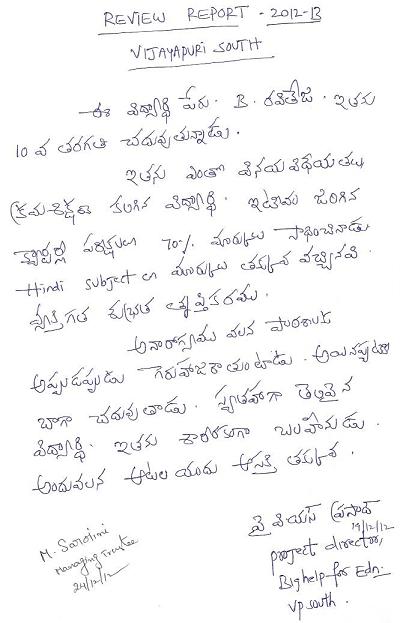 REVIEW REPORT - 2012-13
VIJAYAPURI SOUTH
ఈ విద్యార్థి పేరు. B. రవితేజ. ఇతను
10 వ తరగతి చదువుతున్నాడు.
ఇతను ఎంతో వినయ విధేయతలు
క్రమశిక్షణ కలిగిన విద్యార్థి. ఇటీవల జరిగిన
క్వార్టర్లీ పరీక్షలలో 70% మార్కులు సాధించినాడు
Hindi subject లో మార్కులు తక్కువ వచ్చినవి.
వ్యక్తిగత శుభ్రత తృప్తికరము.
అనారోగ్యము వలన పాఠశాలకు
అప్పుడప్పుడు గైరుహాజరౌతుంటాడు. అయినప్పటికీ
బాగా చదువుతాడు. స్వతహాగా తెలివైన
విద్యార్థి. ఇతను శారీరకంగా బలహీనుడు.
అందువలన ఆటల యందు ఆసక్తి తక్కువ.
వై వియస్ ప్రసాద్
19/12/12
project director,
Bighelp for Edn.
Vp south.
M. Sarojini
Managing Trustee
24/12/12